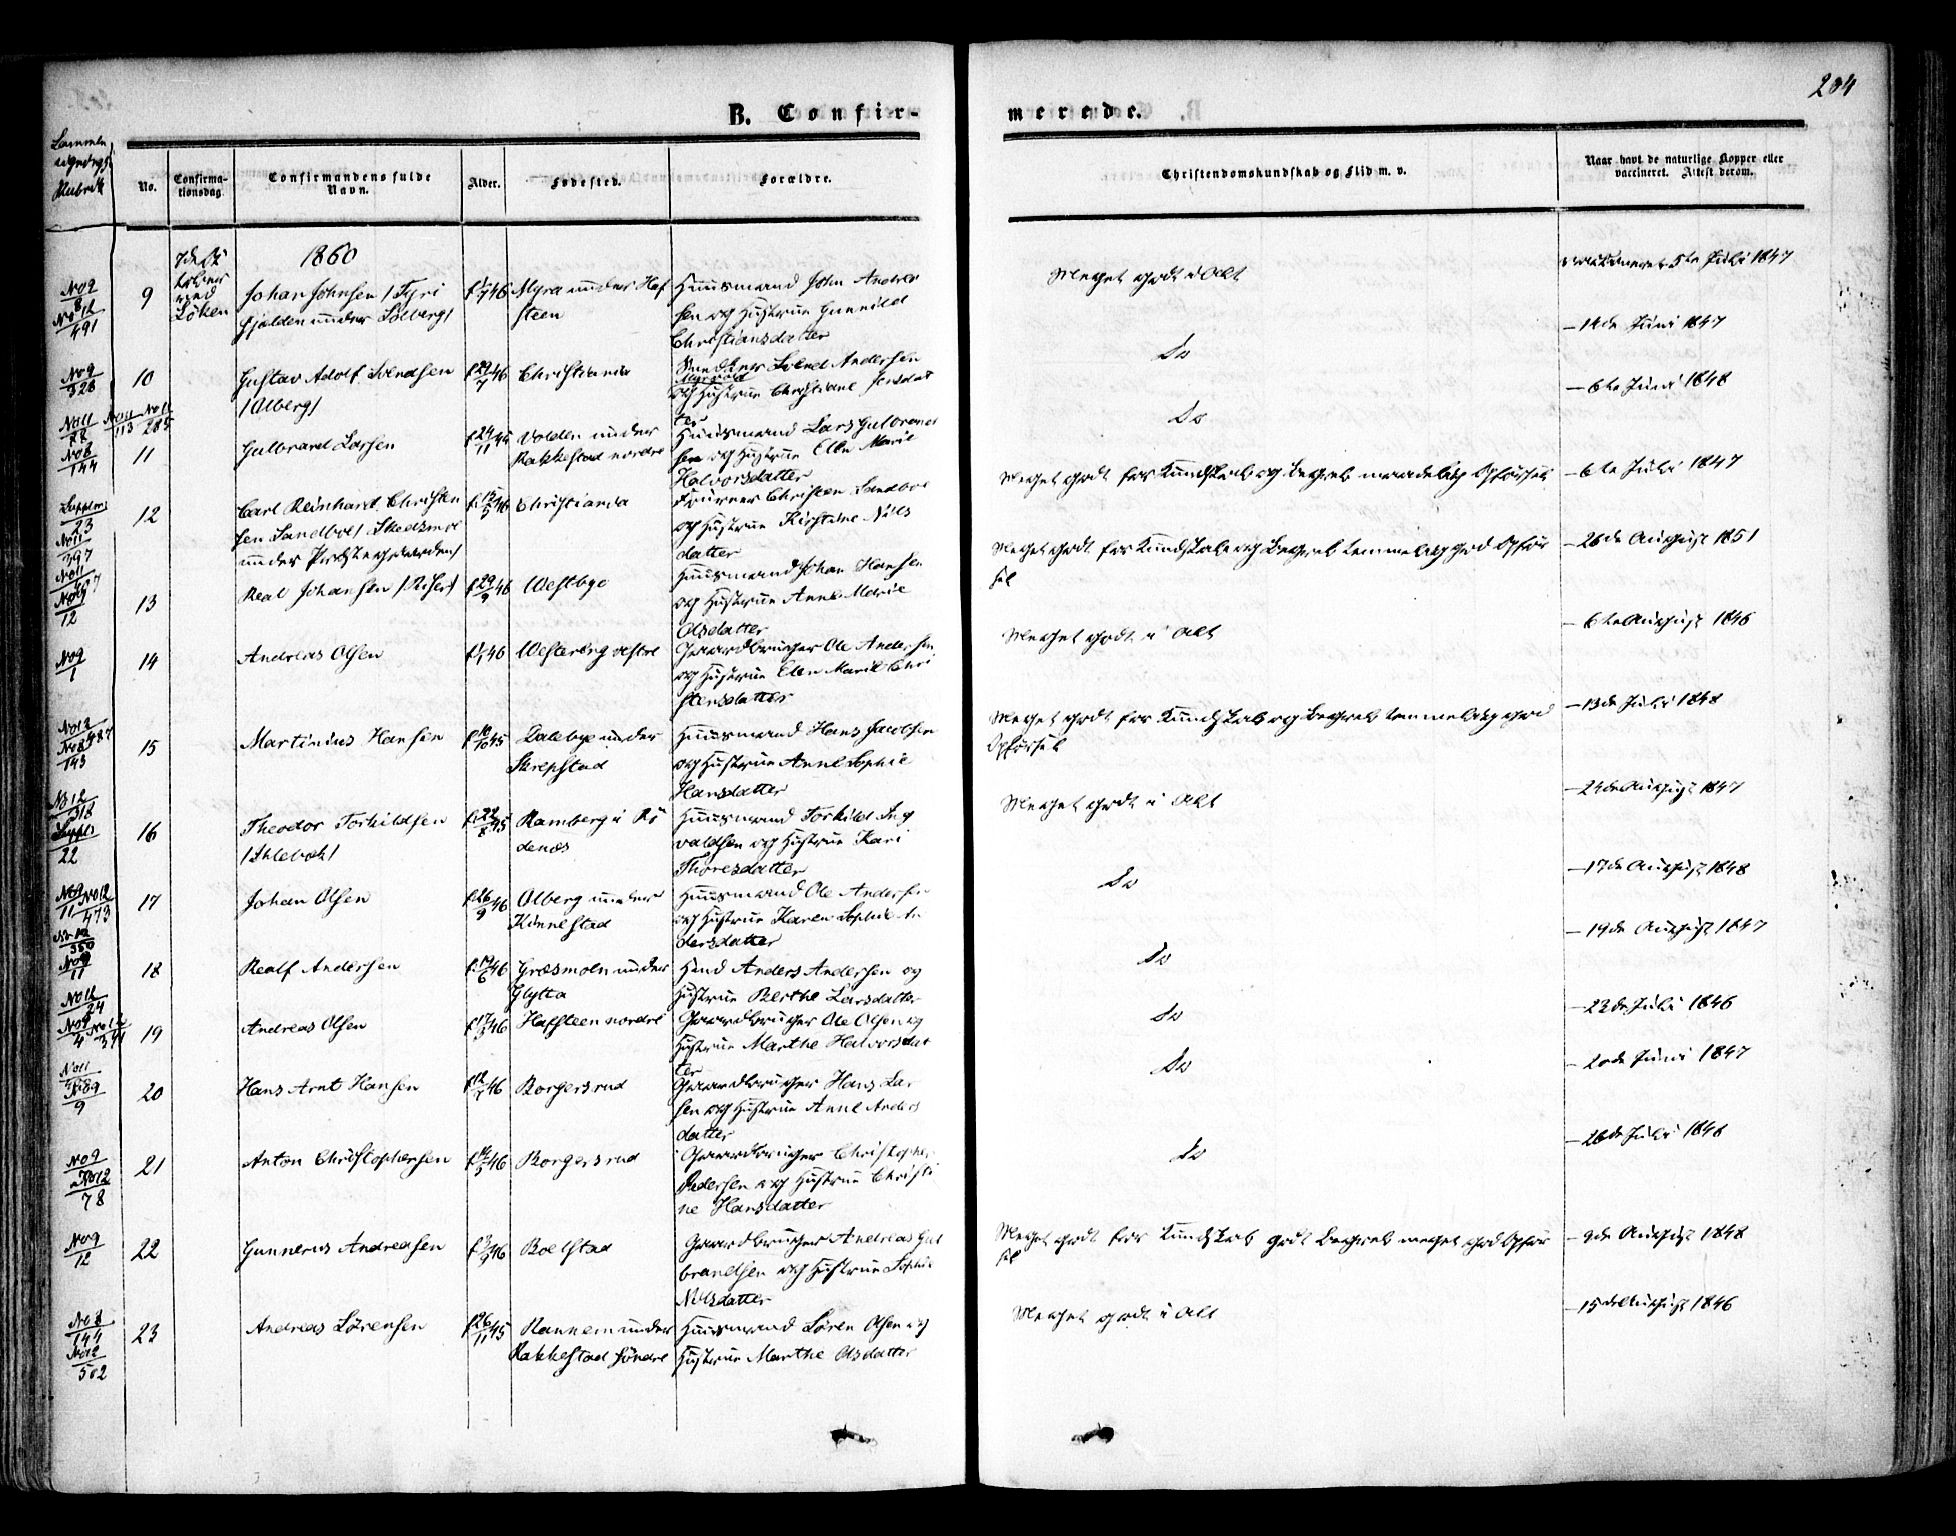 204
B. Confir-
merede.
No.
Confirma-
tionsdag
Confirmandens fulde
Navn.
Alder.
Fødested.
Forældre.
Christendomskundskab og Flid m. v.
Naar havt de naturlige Kopper eller
vaccineret. Attest derom.
1860
9 Johan Johnsen / Fyri
Myra under Haf
steen
Huusmand John Andres
sen og Hustrue Gunnild
Christiansdatter
Meget godt i Alt
vaccineret 5te Juli 1847
10 Gustav Adolf Svendsen
/ Olberg /
f 29/7 46 Christiania
Snedker Svend Andersen
og Hustrue Christiane Jensdat
ter
Do
— 14de Juni 1847
11 Gulbrand Larsen
f 24/11 45 Volden under
Rakkestad nordre
Huusmand Lars Gulbrand
sen og Hustrue Ellen Marie
Halvorsdatter
Do
— 6te Juni 1848
12 Carl Reinhard Christen
sen Sandboe / Skedsmoe
under Præstegaarden /
46 Christiania
Christen Sandboe
og Hustrue Kirstine Niels
datter
Meget godt for Kundskab og Begreb maadelig Opførsel
— 6te Juli 1847
13 Johansen
f 29/9 46 Westbye
Huusmand Johan Hansen
og Hustrue Anne Marie
Olsdatter
Meget godt for Kundskab og Begreb temmelig god Opfør
sel
— 26de August 1851
14 Andreas Olsen
f 1/1 46 Westereng vestre
Gaardbruger Ole Andersen
og Hustrue Ellen Marie Chri
stensdatter
Meget godt i Alt
— 6te August 1846
15 Martinius Hansen
f 10/10 45 Dalebye under
Skrepstad
Huusmand Hans Jacobsen
og Hustrue Anne Sophie
Hansdatter
Meget godt for Kundskab og Begreb temmelig god
Opførsel
— 13de Juli 1848
16 Theodor Torkildsen
/ Shlebæk /
f 22/8 45 Ramberg i Rø
denæs
Huusmand Torkild Ing
valdsen og Hustrue Kari
Thoresdatter
Meget godt i Alt
— 24de August 1847
17 Johan Olsen
f 26/9 46 Olberg under
Kinnestad
Huusmand Ole Andersen
og Hustrue Karen Sophie An
dersdatter
Do
— 17de August 1848
18 Realf Andersen
f 19/6 46 Græsmoen under
Glytta
Anders Andersen og
Hustrue Berthe Larsdatter
Do
— 19de August 1847
19 Andreas Olsen
f 17/3 46 Hafsteen nordre
Gaardbruger Ole Olsen og
Hustrue Marthe Halvorsdat
ter
Do
— 22de Juli 1846
20 Hans Arnt Hansen
46 Borgersrud
Gaardbruger Hans Lar
sen og Hustrue Anne Anders
datter
Do
— 20de Juni 1847
21 Anton Christophersen
46 Borgersrud
Gaardbruger Christopher
Pedersen og Hustrue Christi
ne Hansdatter
Do
— 28de Juli 1848
22 Gunnerus Andreasen
46 Boelstad
Gaardbruger Andreas Gul
brandsen og Hustrue Sophie
Nilsdatter
Meget godt for Kundskab godt Begreb meget god Opfør
sel
— 9de August 1848
23 Andreas Sørensen
f 26/11 45 Rannem under
Rakkestad søndre
Huusmand Søren Olsen og
Hustrue Marthe Olsdatter
Meget godt i Alt
— 15de August 1846